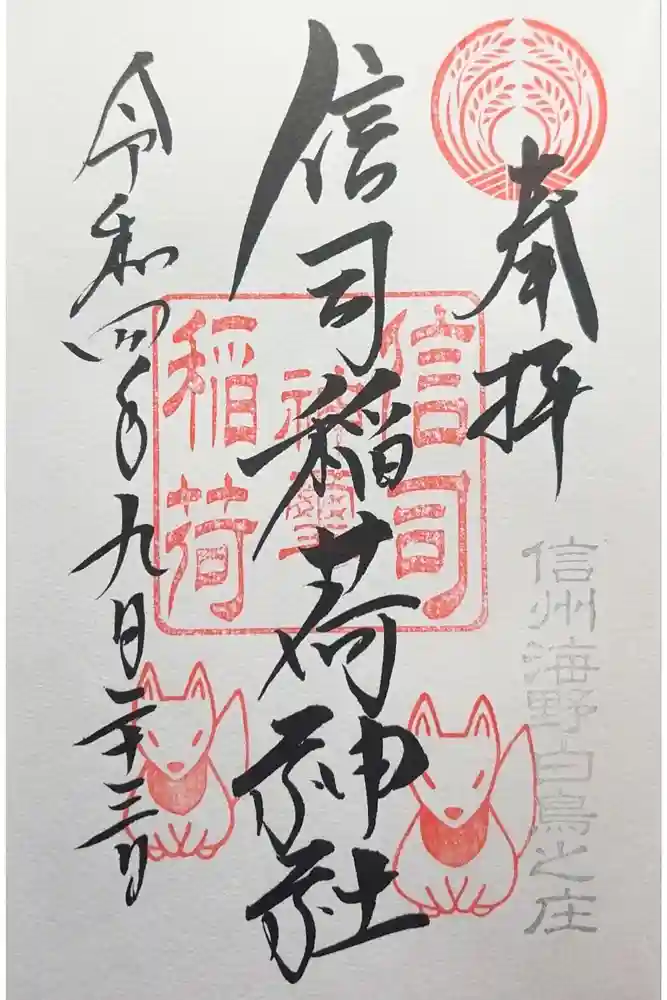 奉拝
信州海野白鳥之庄
信司稲荷神社
信司
神璽
稲荷
令和四年九月二十三日